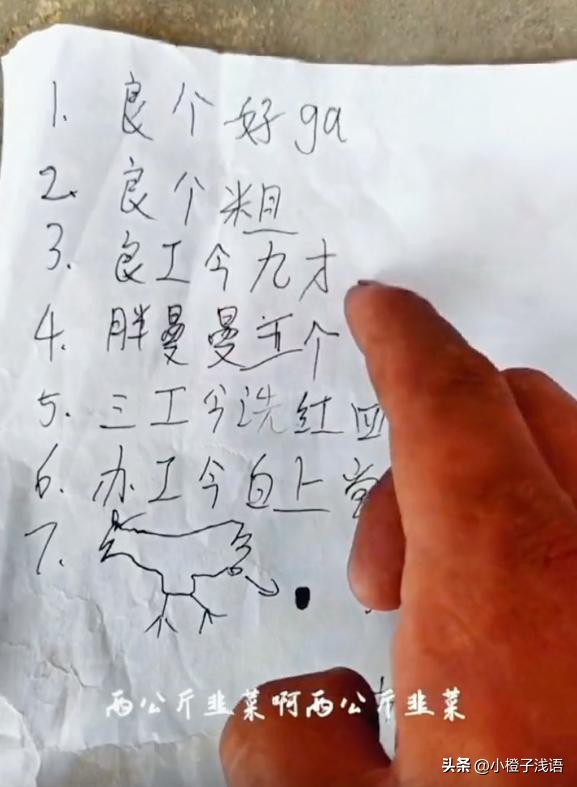 1. 良个好ga
2. 良个粗
3. 良工今九才
4. 胖曼曼五个
5. 三工今洗红皿
6. 办工今白上
7.
两公斤韭菜啊两公斤韭菜
头条 @小橙子浅语